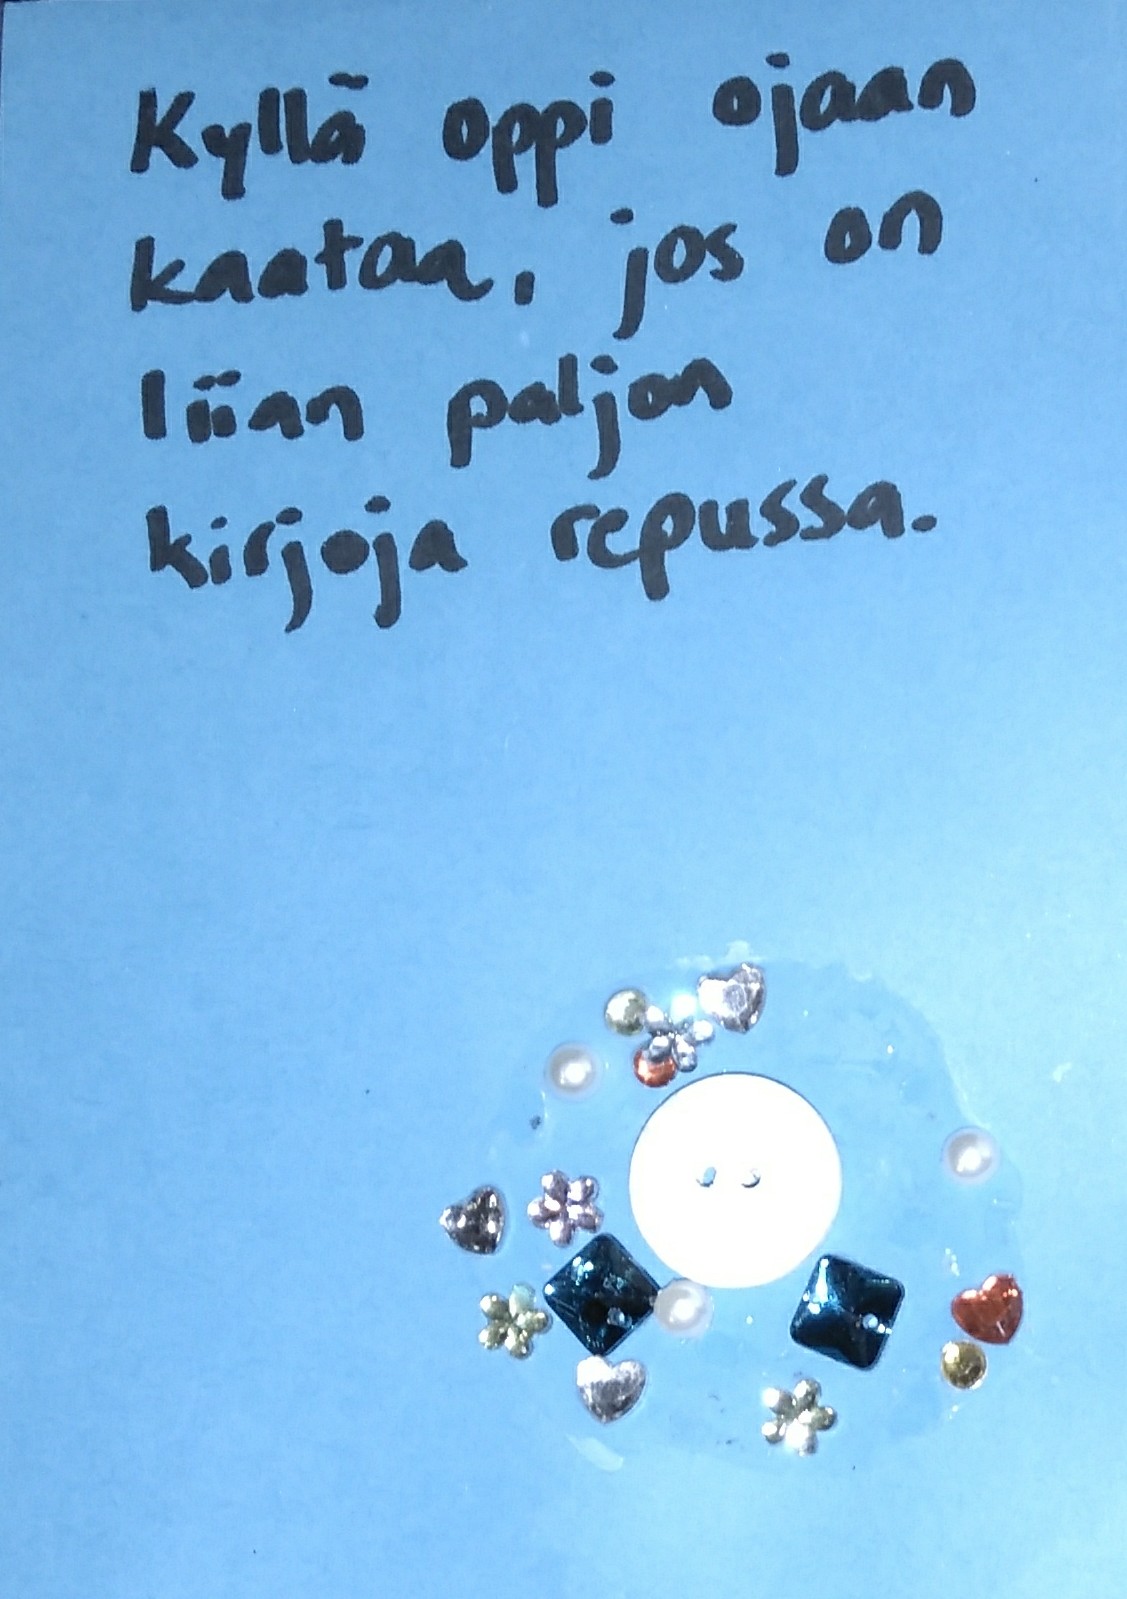 Kyllä oppi ojaan
kaataa, jos on
liian paljon
kirjoja repussa.